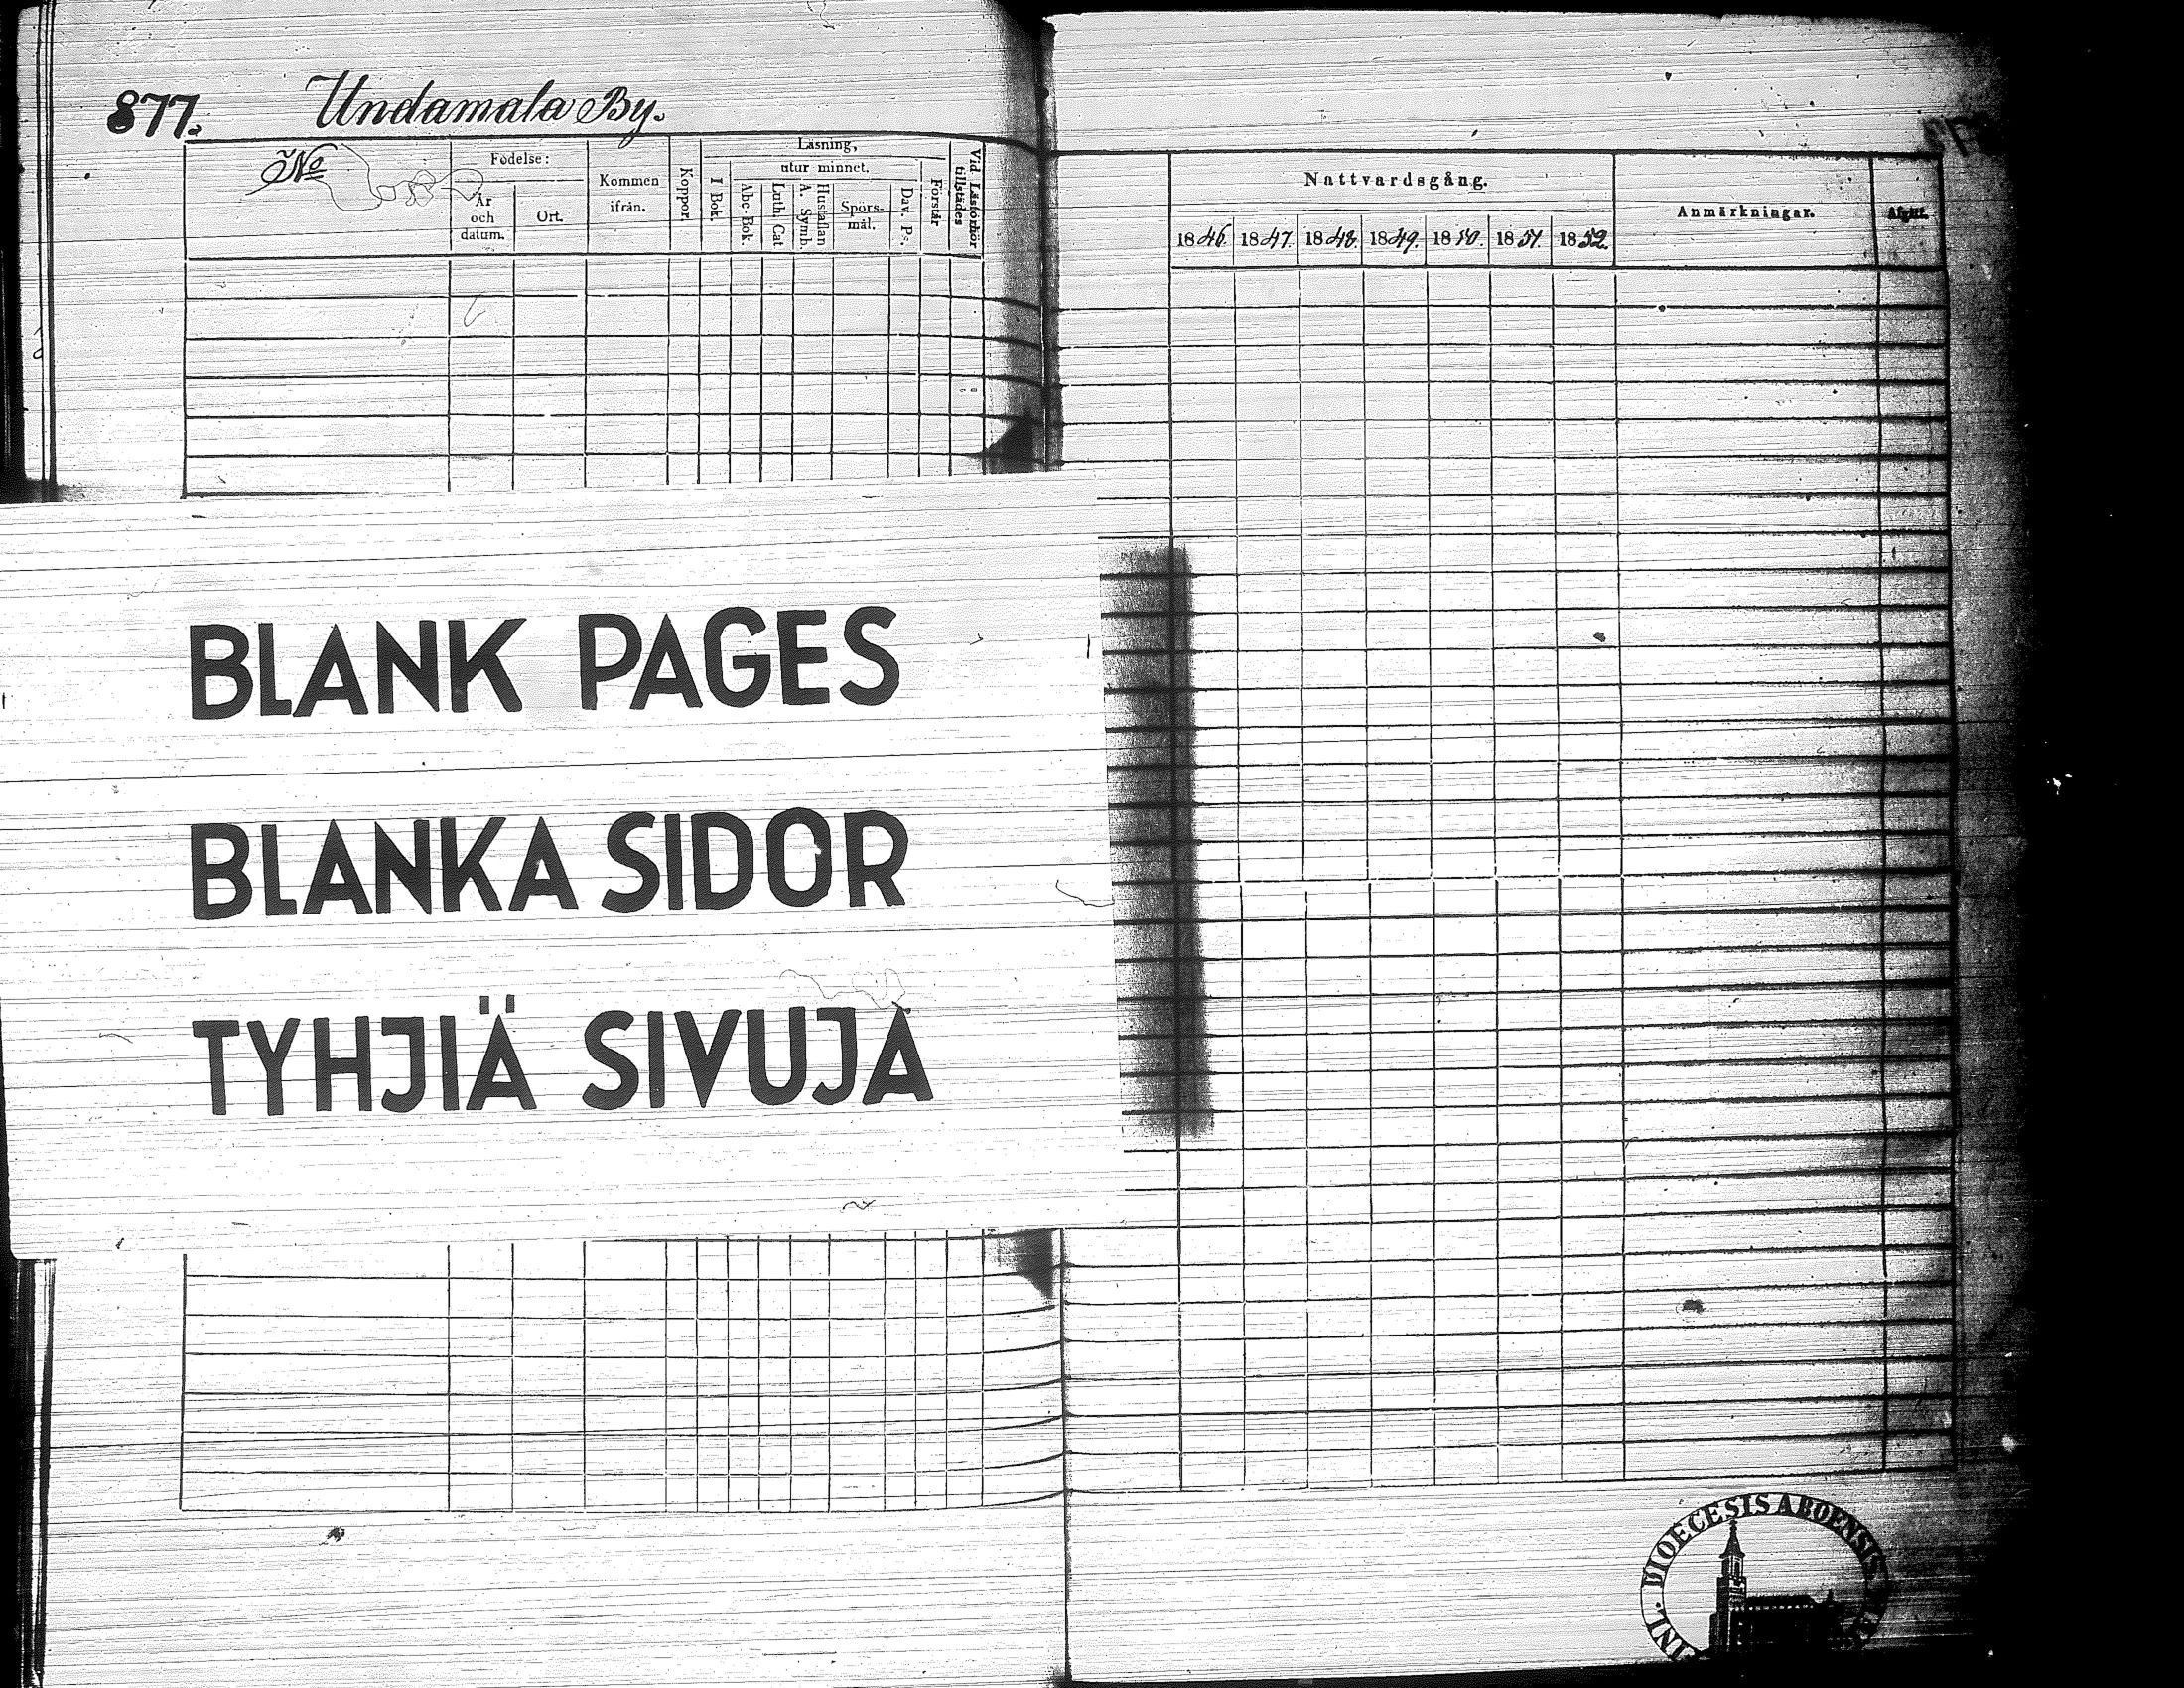 877. Undamala By.
No
Födelse:
År
och
datum.
Ort.
Kommen
ifrån.
Koppor.
Läsning,
I Bok.
utur minnet.
Abc-Bok.
Luth. Cat
A. Symb.
Hustaflan
Spörs-
mål.
Dav. Ps.
Förstår
Vid Läsförhör
tillstädes
Nattvardsgång.
1846. 1847. 1848. 1849. 1850. 1851. 1852.
Anmärkningar.
Afgått.
BLANK PAGES
BLANKA SIDOR
TYHJIÄ SIVUJA
DIOECESIS ABOENSIS